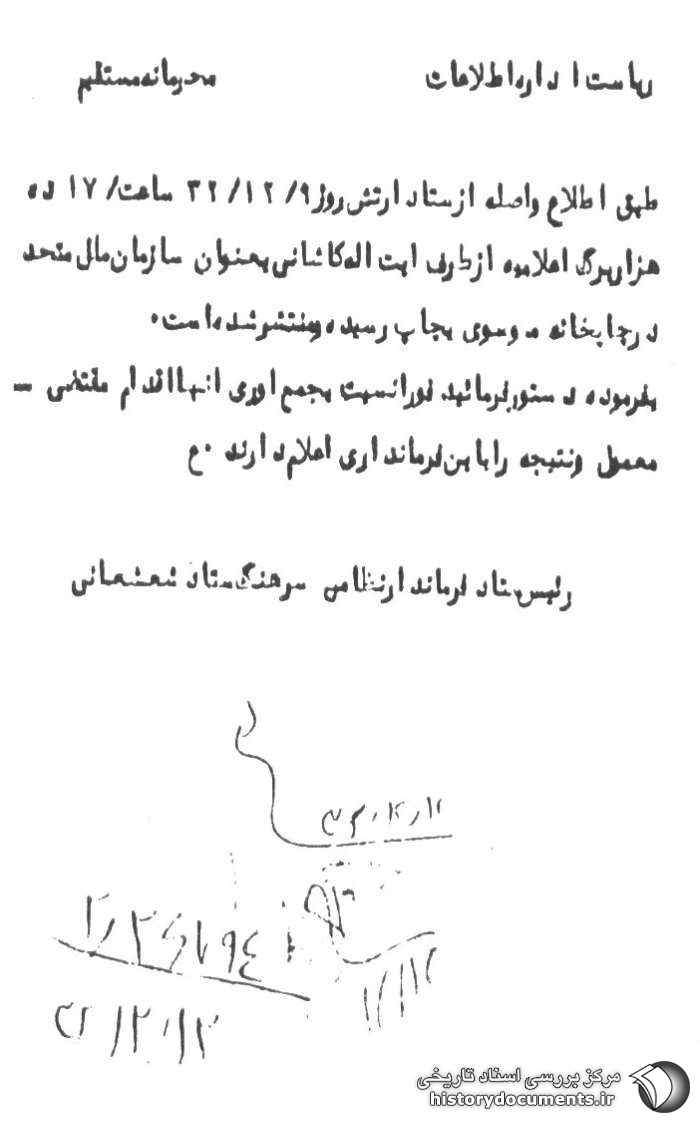 ریاست اداره اطلاعات محرمانه مستقیم
طبق اطلاع واصله از ستاد ارتش روز ۹/ ۱۲/ ۳۲ ساعت/ ۱۷ ده
هزار برگ اعلامیه از طرف ایت اله کاشانی بعنوان سازمان مال متحد
در چاپخانه موسوی بچاپ رسیده و منتشر شده است۰
بفرموده دستور فرمائید فورا نسبت بجمع اوری انها اقدام مقتضی —
معمول و نتیجه را باین فرمانداری اعلام دارند ۰ع
رئیس ستاد فرماندار نظامی سرهنگ ستاد شعشعانی
۱۲/۱۲
۳۲/۱۲/۱۲
مرکز بررسی اسناد تاریخی
historydocuments.ir